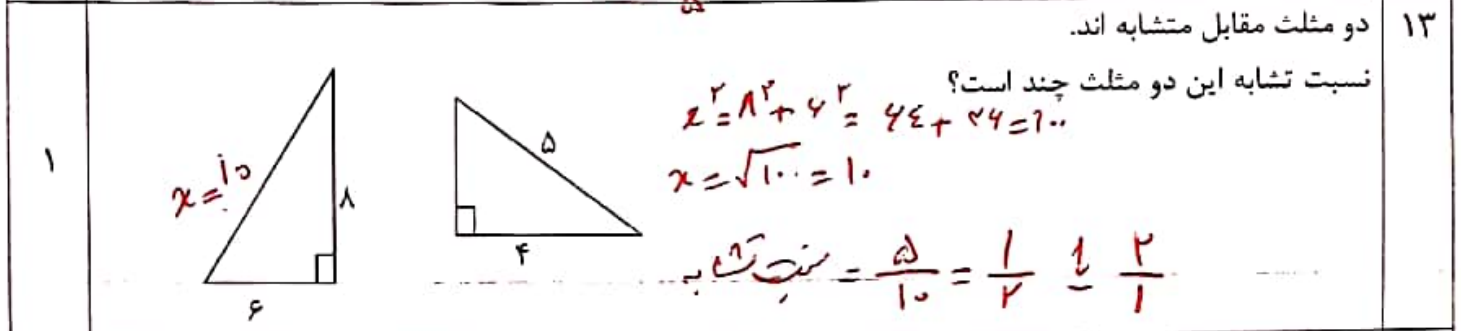 ۱۳
دو مثلث مقابل متشابه اند.
نسبت تشابه این دو مثلث چند است؟
x² = ۸² + ۶² = ۶۴ + ۳۶ = ۱۰۰
x = √۱۰۰ = ۱۰
نسبت تشابه = ۵/۱۰ = ۱/۲ یا ۲/۱
x = ۱۰
۸
۶
۵
۴
۱